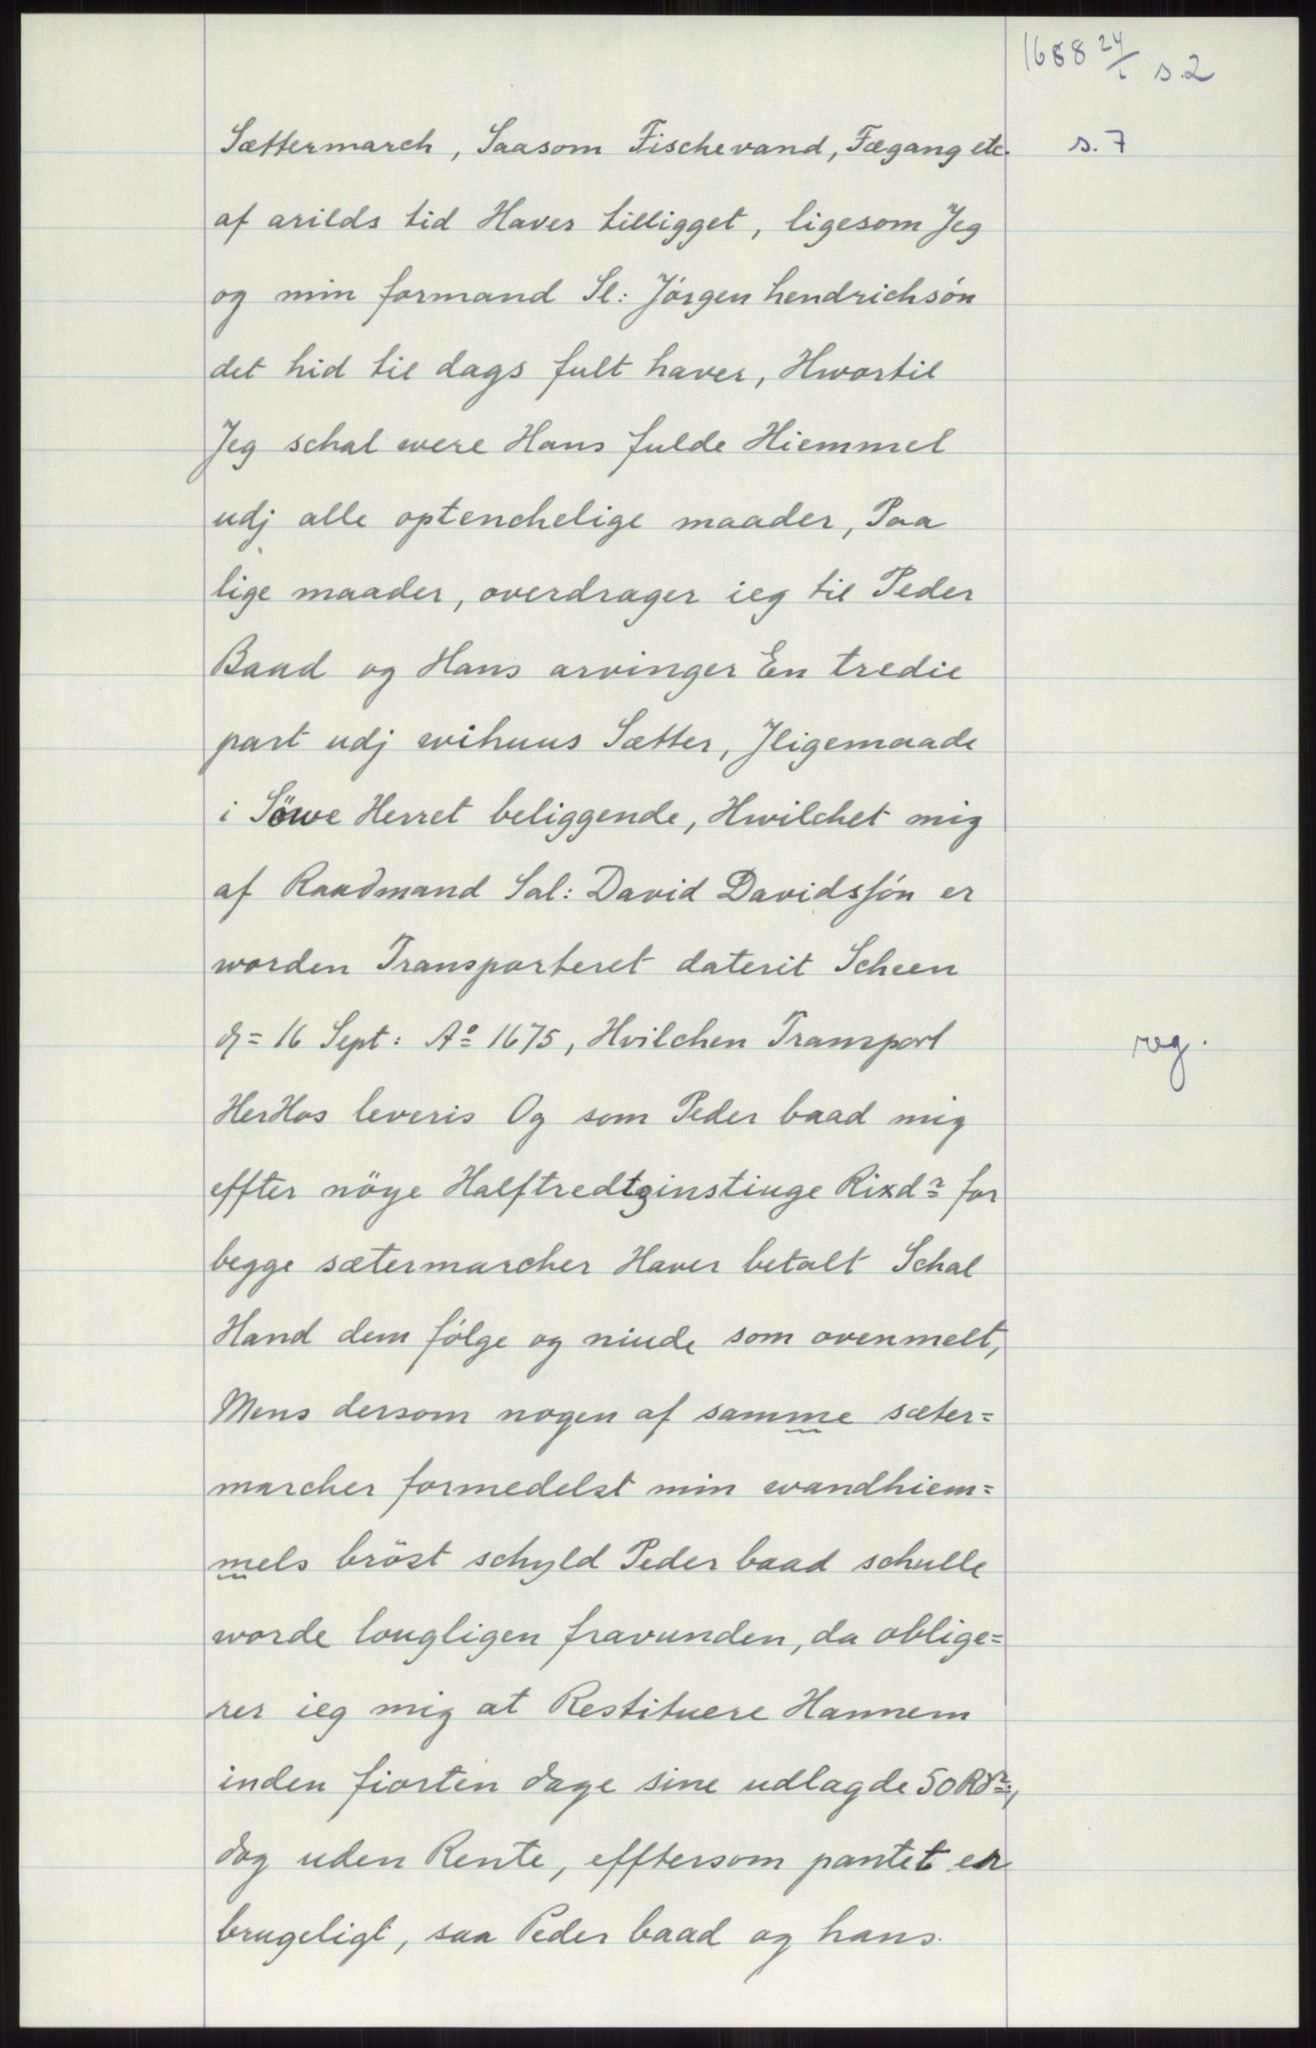 1688 24/1 s.2
Sættermarch, Saasom Fischevand, Fægang etc. s. 7
af arilds tid Haver tilligget, ligesom Jeg
og min formand Sl: Jörgen hendrichsön
det hid til dags fult haver, Hwortil
Jeg schal were Hans fulde Hiemmel
udj alle optenchelige maader, Paa
lige maader, overdrager ieg til Peder
Baad og Hans arvinger En tredie
part udj wihuus Sætter, Jligemaade
i Söwe Herret beliggende, Hwilchet mig
af Raadmand Sal: David Davidssön er
worden Transporteret daterit Scheen
d= 16 Sept: Ao 1675, Hvilchen Transport reg.
HerHos leveris Og som Peder baad mig
effter nöye Halftredtzinstiuge Rixdr for
begge sætermarcher Haver betalt Schal
Hand dem fölge og niude som ovenmelt,
Mens dersom nogen af samme sæter=
marcher formedelst min wandhiem=
mels bröst schyld Peder baad schulle
worde lougligen fravunden, da oblige=
rer ieg mig at Restituere Hannem
inden fiorten dage sine udlagde 50 Rdr:,
dog uden Rente, efftersom pantet er
brugeligt, saa Peder baad og hans